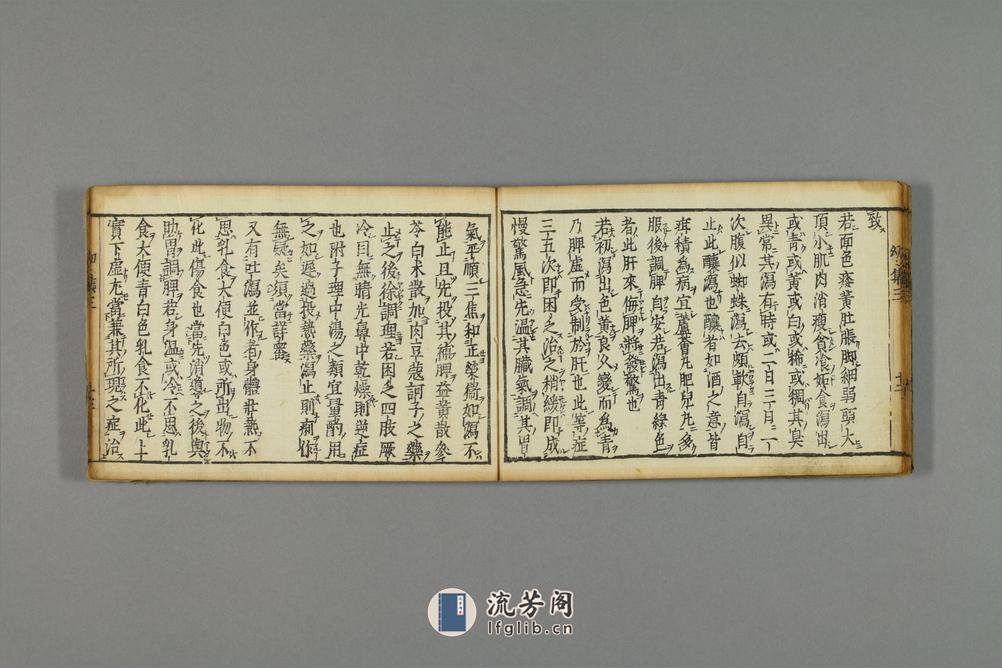 致
若面色痿黄肚脹脚細弱頭大
頂小肌肉消瘦食飡如故瀉出
或青或黄或白或稀或稠其臭
異常其瀉有時或一日三日一
次腹似蜘蛛瀉去頗軟自瀉自
止此釀瀉也釀者如酒之意皆
疳積為病宜蘆薈丸肥兒丸多
服後調脾自安若瀉出青綠色
者此肝來侮脾將發驚也
若初瀉出色黄良久變而為青
乃脾虛而受制於肝也此等症
三五次即困乏治之稍緩即成
慢驚風急先温其臟氣調其胃
氣平順三焦和正

能止且先投其補脾益黄散參
苓白朮散加肉豆蔻訶子之藥
止之後徐調理若困乏四肢厥
冷目無睛光鼻中乾燥則逆症
也附子理中湯之類宜量酌用
之如遲過投熱藥瀉止則痢作
無疑矣須當詳審
又有吐瀉並作者身體壯熱不
思乳食大便白色或所出物不
化此傷食也當先消導之後與
助胃調脾若身温或冷不思乳
食大便青白色乳食不化此上
實下虛尤當兼其所現之症治
流芳阁
lfglib.cn